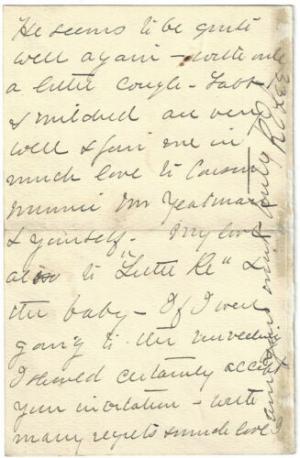 He seems to be quite
well again - with only
a little cough -
& Mildred are very
well & join me in
much love to Cousin
Minnie Mr Yeatman
& yourself - My love
also to "Little Re" &
the baby - If I were
going to the unveiling
I should certainly accept
your invitation - with
many regrets & much love I
am yours most